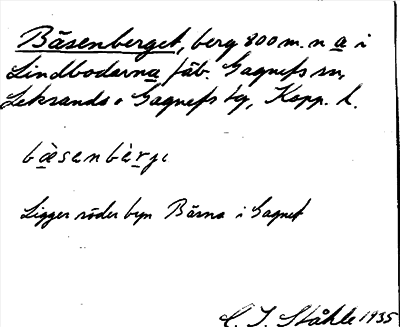 Bäsenberget, berg 800 m. n a i
Lindbodarna, fäb. Gagnefs sn,
Leksands o Gagnefs tg, Kopp. l.
bäsenbèrge
Ligger söder byn Bärna i Gagnef
C. I. Ståhle 1935